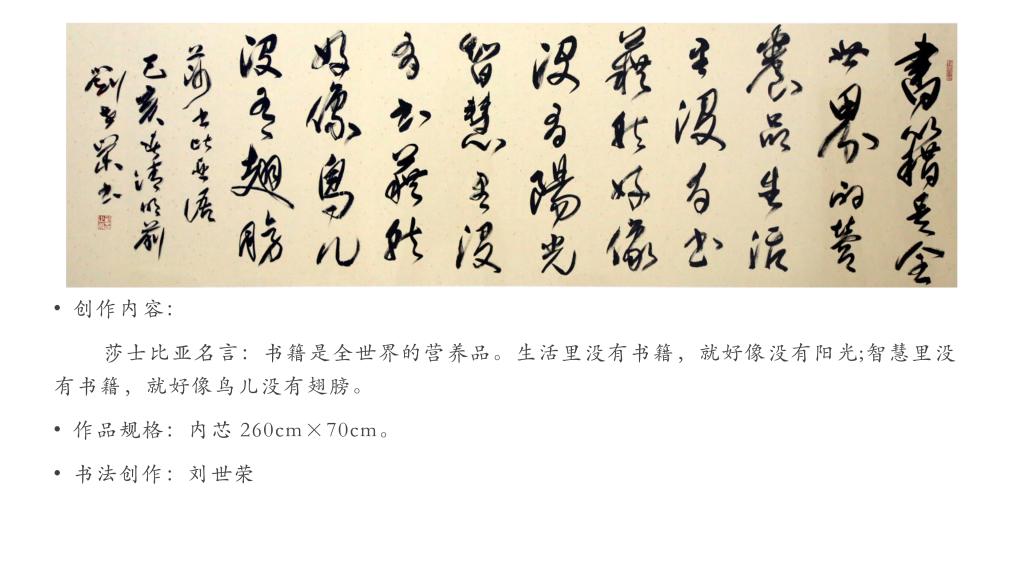 書籍是全
世界的營
養品生活
里没有书
籍就好像
没有陽光
智慧里没
有书籍就
好像鳥儿
没有翅膀
莎士比亚语
己亥清明前
劉世榮书
• 创作内容：
莎士比亚名言：书籍是全世界的营养品。生活里没有书籍，就好像没有阳光;智慧里没
有书籍，就好像鸟儿没有翅膀。
• 作品规格：内芯 260cm×70cm。
• 书法创作：刘世荣